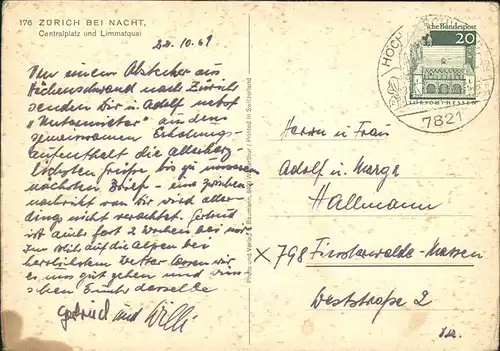 176 ZÜRICH BEI NACHT,
Centralplatz und Limmatquai
22.10.69
Von einem Abstecher aus
Höchenschwand nach Zürich
senden Dir u. Adolf nebst
aus dem
gemeinsamen Erholungs-
aufenthalt die allerherz-
lichsten Grüße, bis zu unserem
nächsten Brief – eine zwischen
nachricht von Dir wird aller-
dings nicht verachtet. Gertrud
ist auch fast 2 Wochen bei mir.
Im Blick auf die Alpen bei
herrlichstem Wetter lassen wir
es uns gut gehen und wün-
schen Euch dasselbe
Gertrud und Willi
Photo und Verlag
Printed in Switzerland
Deutsche Bundespost
20
LORSCH/HESSEN
HOCH
7821
Herrn u Frau
Adolf u. Marga
Hallmann
x 798 Finsterwalde-Massen
Weststraße 2